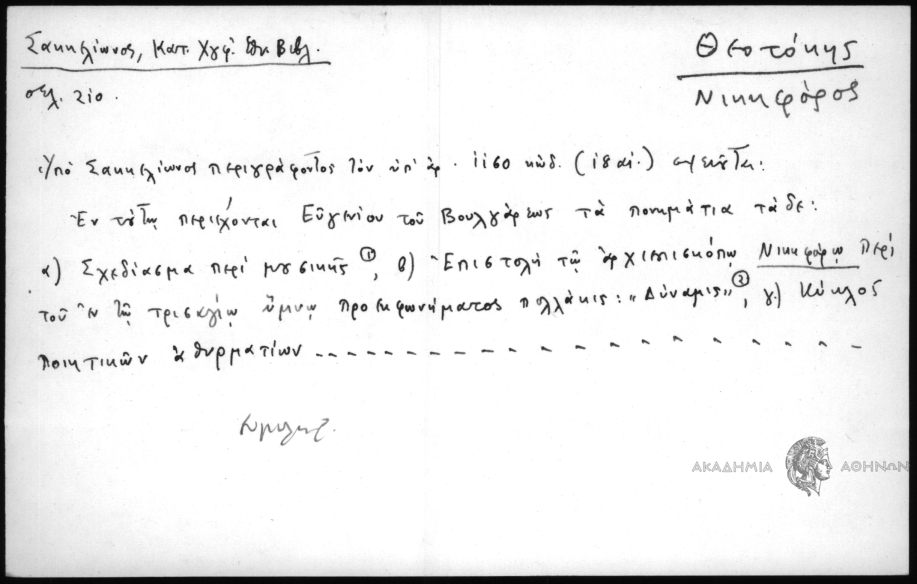 Σακκελίωνος, Κατ. Χγφ. Εθν. Βιβλ.
Θεοτόκης
Νικηφόρος
σελ. 210.
Ὑπό Σακκελίωνος περιγράφοντος τὸν ὑπ' ἀρ. 1160 κώδ. (18 αἰ.)
Ἐν τούτῳ περιέχονται Εὐγενίου τοῦ Βουλγάρεως τὰ πονημάτια τάδε:
α) Σχεδίασμα περί μουσικῆς ①, β) Ἐπιστολή τῷ ἀρχιεπισκόπῳ Νικηφόρῳ περί
τοῦ ἐν τῷ τρισαγίῳ ὕμνῳ προσφωνήματος πολλάκις: "Δύναμις" ②, γ) Κύκλος
ποιητικῶν ἀθυρματίων - - - - - - - - - - - - - - - - -
ΑΚΑΔΗΜΙΑ ΑΘΗΝΩΝ